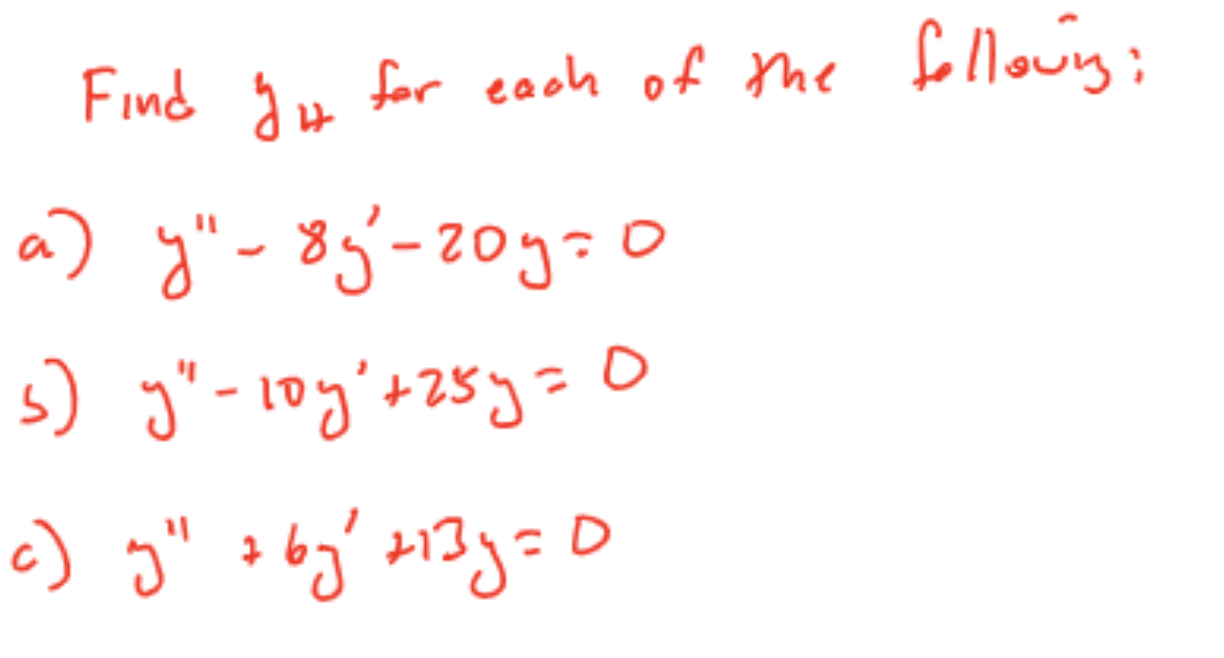 Find y_H for each of the following:
a) y'' - 8y' - 20y = 0
b) y'' - 10y' + 25y = 0
c) y'' + 6y' + 13y = 0